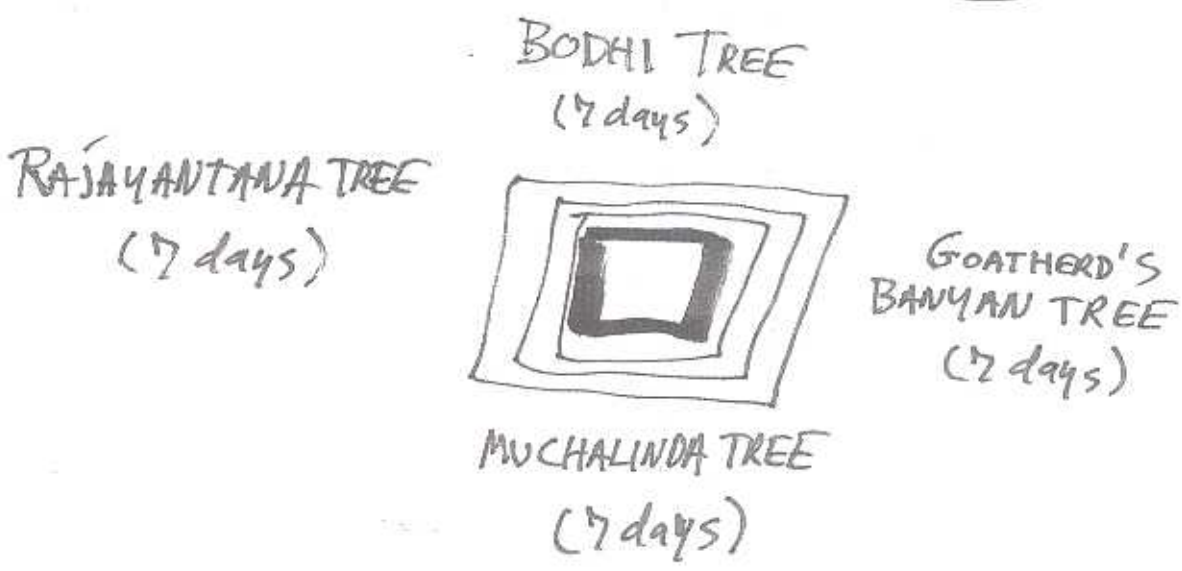 BODHI TREE
(7 days)
RAJAYANTANA TREE
(7 days)
GOATHERD'S
BANYAN TREE
(7 days)
MUCHALINDA TREE
(7 days)